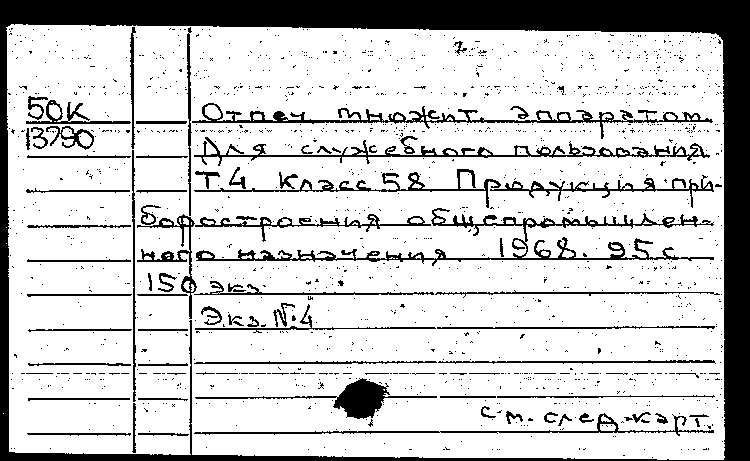 2.
50К Отпеч. множит. аппаратом.
13790 Для служебного пользования.
Т.4. Класс 58 Продукция при-
боростроения общепромышлен-
ного назначения. 1968. 95 с.
150 экз.
Экз. №4
см. след. карт.